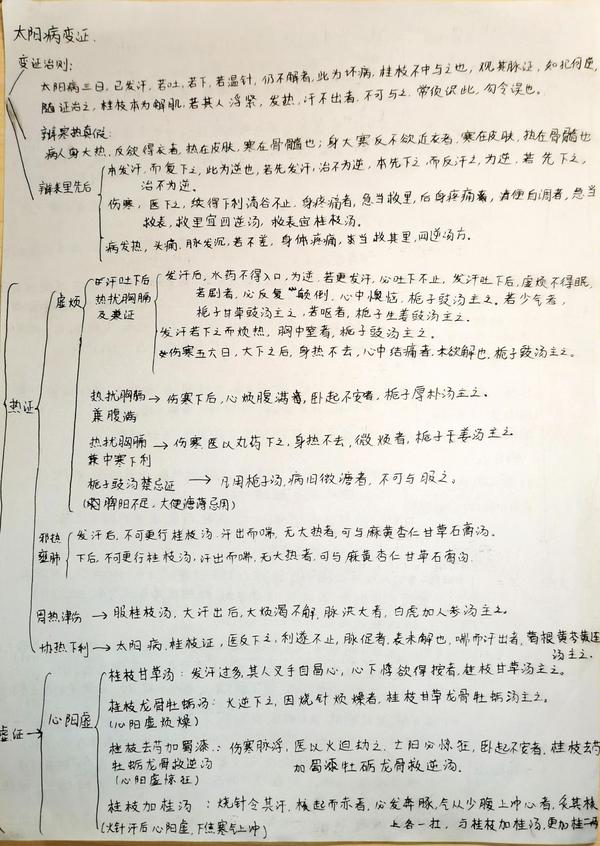 太阳病变证.
变证治则:
太阳病三日,已发汗,若吐,若下,若温针,仍不解者,此为坏病,桂枝不中与之也,观其脉证,知犯何逆,
随证治之,桂枝本为解肌,若其人浮紧,发热,汗不出者,不可与之,常须识此,勿令误也。
辩寒热真假:
病人身大热,反欲得衣者,热在皮肤,寒在骨髓也;身大寒反不欲近衣者,寒在皮肤,热在骨髓也
辩表里先后
本发汗,而复下之,此为逆也,若先发汗,治不为逆,本先下之,而反汗之,为逆,若先下之,
治不为逆。
伤寒,医下之,续得下利清谷不止,身疼痛者,急当救里,后身疼痛,清便自调者,急当
救表,救里宜四逆汤,救表宜桂枝汤。
病发热,头痛,脉发沉,若不差,身体疼痛,当救其里,四逆汤方。
热证
虚烦
汗吐下后
热扰胸膈
及兼证
发汗后,水药不得入口,为逆,若更发汗,必吐下不止,发汗吐下后,虚烦不得眠,
若剧者,必反复颠倒,心中懊憹,栀子豉汤主之。若少气者,
栀子甘草豉汤主之,若呕者,栀子生姜豉汤主之。
发汗若下之而烦热,胸中窒者,栀子豉汤主之。
伤寒五六日,大下之后,身热不去,心中结痛者,未欲解也,栀子豉汤主之。
热扰胸膈
兼腹满
→伤寒下后,心烦腹满,卧起不安者,栀子厚朴汤主之。
热扰胸膈
兼中寒下利
→伤寒,医以丸药下之,身热不去,微烦者,栀子干姜汤主之
栀子豉汤禁忌证
→凡用栀子汤,病旧微溏者,不可与服之。
(脾阳不足,大便溏薄忌用)
邪热
壅肺
发汗后,不可更行桂枝汤,汗出而喘,无大热者,可与麻黄杏仁甘草石膏汤。
下后,不可更行桂枝汤,汗出而喘,无大热者,可与麻黄杏仁甘草石膏汤
胃热津伤→服桂枝汤,大汗出后,大烦渴不解,脉洪大者,白虎加人参汤主之。
协热下利→太阳病,桂枝证,医反下之,利遂不止,脉促者,表未解也,喘而汗出者,葛根黄芩黄连
汤主之。
虚证→
心阳虚
桂枝甘草汤:发汗过多,其人叉手自冒心,心下悸欲得按者,桂枝甘草汤主之。
桂枝龙骨牡蛎汤:火逆下之,因烧针烦燥者,桂枝甘草龙骨牡蛎汤主之。
(心阳虚烦燥)
桂枝去芍加蜀漆:伤寒脉浮,医以火迫劫之,亡阳必惊狂,卧起不安者,桂枝去芍
牡蛎龙骨救逆汤
加蜀漆牡蛎龙骨救逆汤.
(心阳虚惊狂)
桂枝加桂汤:烧针令其汗,核起而赤者,必发奔豚,气从少腹上冲心者,灸其核
(火针汗后心阳虚,下焦寒气上冲)
上各一壮,与桂枝加桂汤,更加桂二两